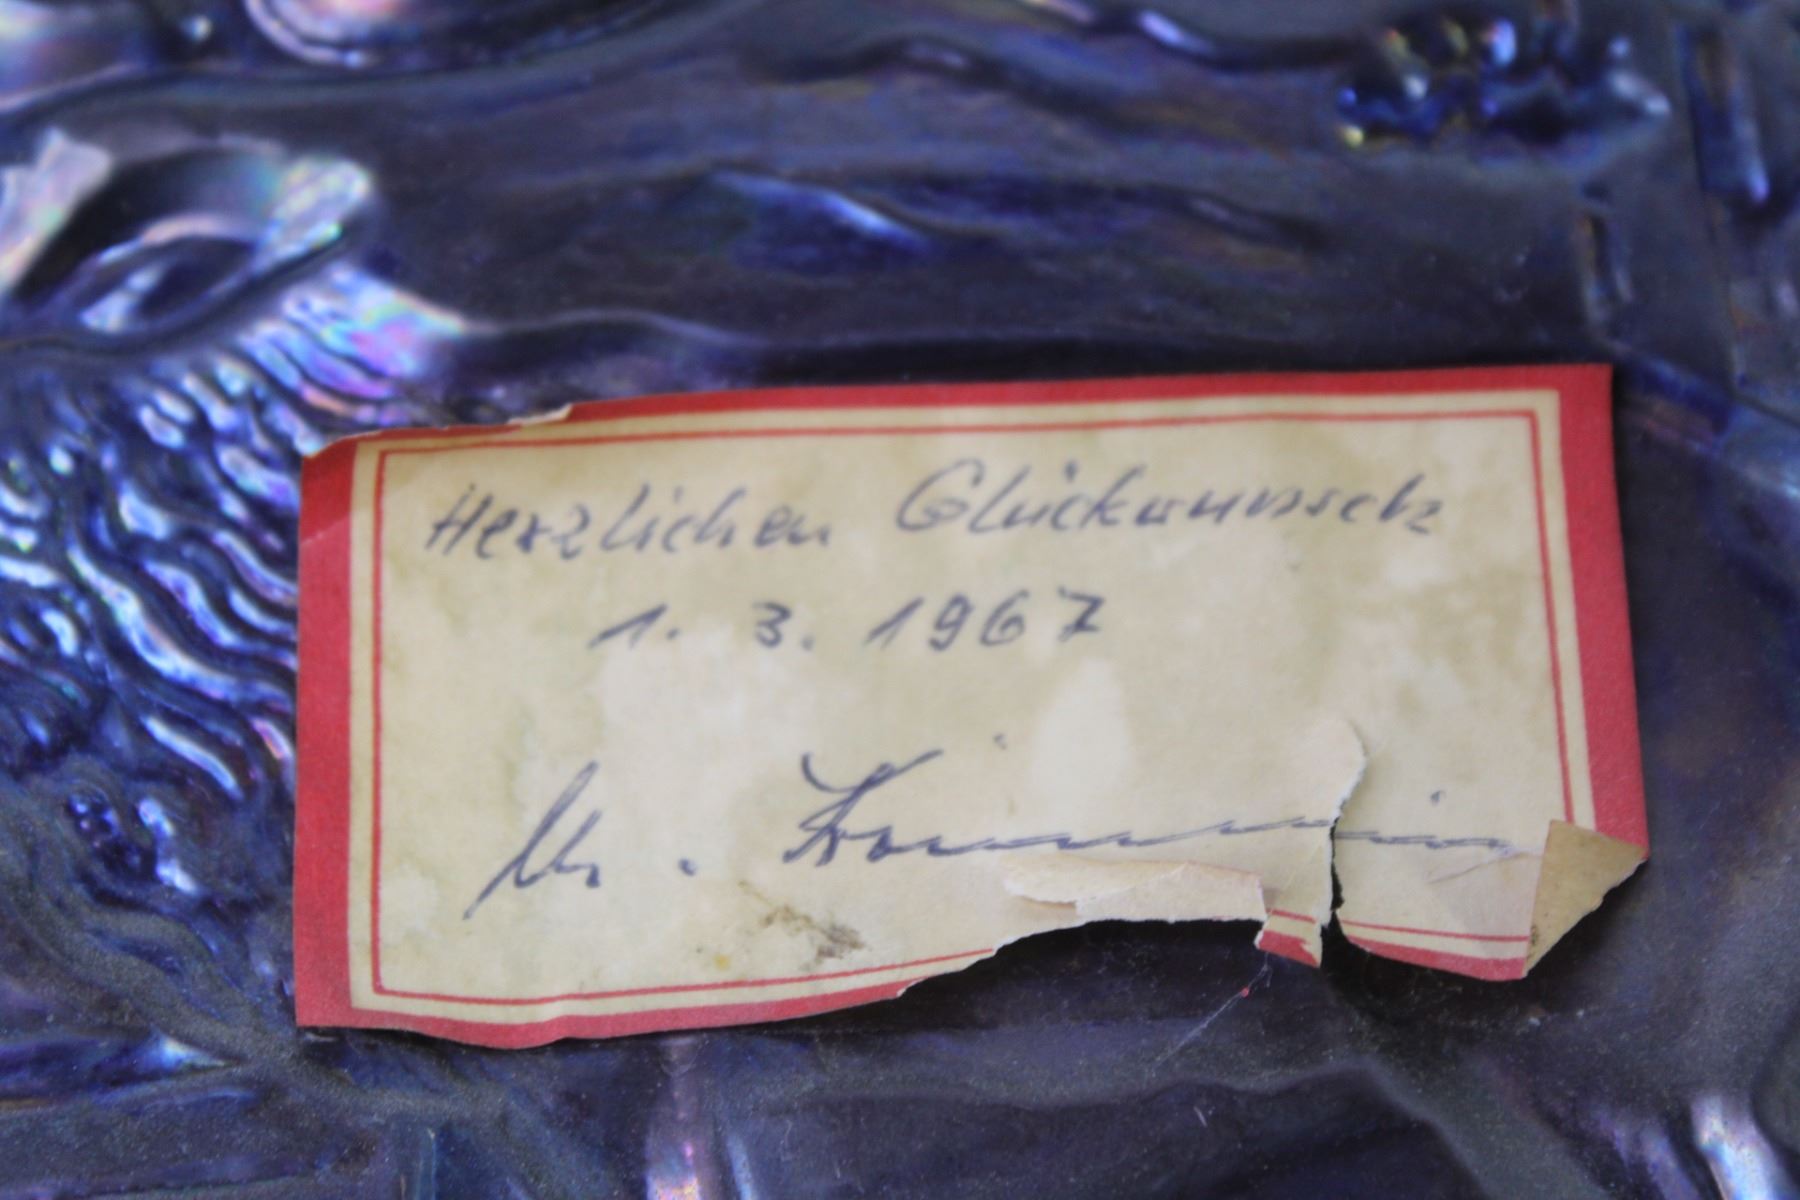 Herzlichen Glückwunsch
1. 3. 1967